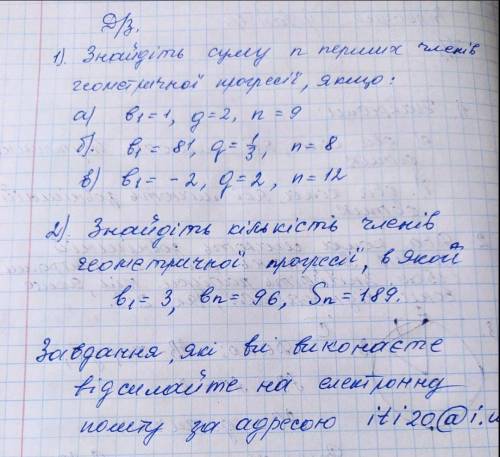 Д/з.
1). Знайдіть суму n перших членів
геометричної прогресії, якщо:
а) b₁ = 1, q = 2, n = 9
б). b₁ = 81, q = 1/3, n = 8
в) b₁ = - 2, q = 2, n = 12
2). Знайдіть кількість членів
геометричної прогресії, в якой
b₁ = 3, bn = 96, Sn = 189.
Завдання, які ви виконаєте
відсилайте на електронну
пошту за адресою iti20.@i.u